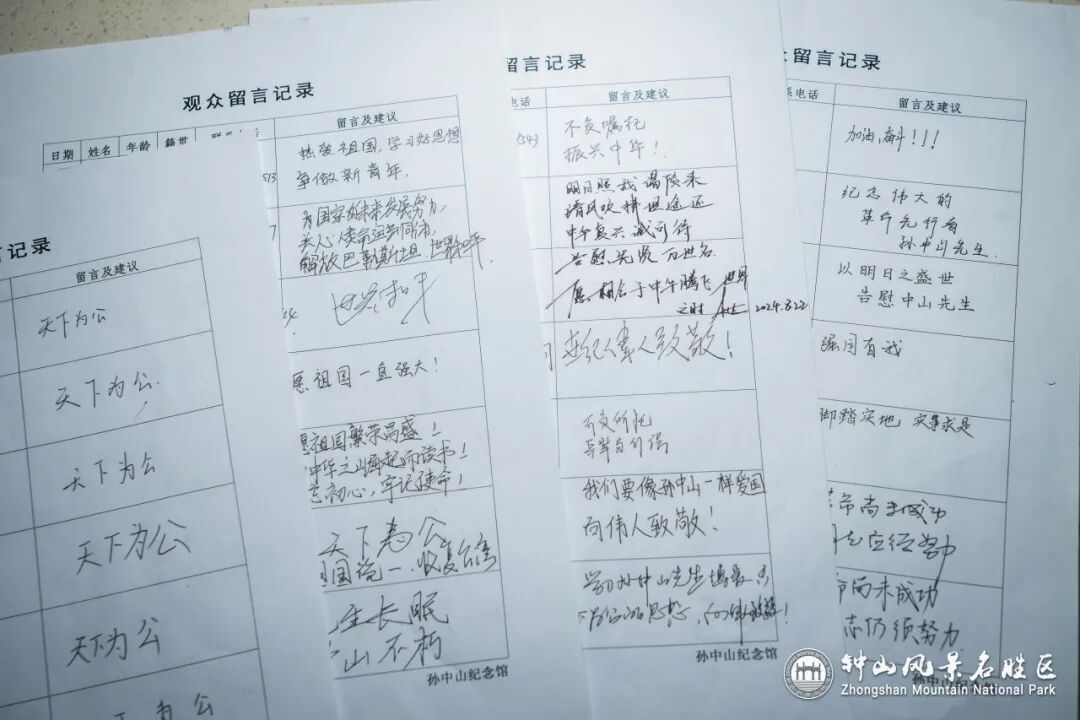 言记录
留言及建议
天下为公
天下为公
天下为公
天下为公
天下为公
为公
观众留言记录
日期 姓名 年龄 籍贯
留言及建议
热爱祖国,学习好思想
争做新青年。
为国家的未来发展努力,
关心人类命运共同体,
解放巴勒斯坦,世界和平
世界和平
愿祖国一直强大!
愿祖国繁荣昌盛!
中华之崛起而读书!
初心,牢记使命!
天下为公
国统一,收复台湾
生长眠
山不朽
孙中山纪念馆
留言记录
电话
留言及建议
543
不负嘱托
振兴中华!
明日照我谒陵来
清风吹拂世途还
中华复兴诚可待
告慰先贤万世名
愿相会于中华腾飞世界
之时
2024.8.22
伟人致敬!
我们要像孙中山一样爱国
向伟人致敬!
学习孙中山先生博爱
孙中山纪念馆
众留言记录
系电话
留言及建议
加油,奋斗!!!
纪念伟大的
革命先行者
孙中山先生.
以明日之盛世
告慰中山先生
强国有我
脚踏实地 实事求是
命尚未成功
志仍须努力
孙中山纪念馆
钟山风景名胜区
Zhongshan Mountain National Park